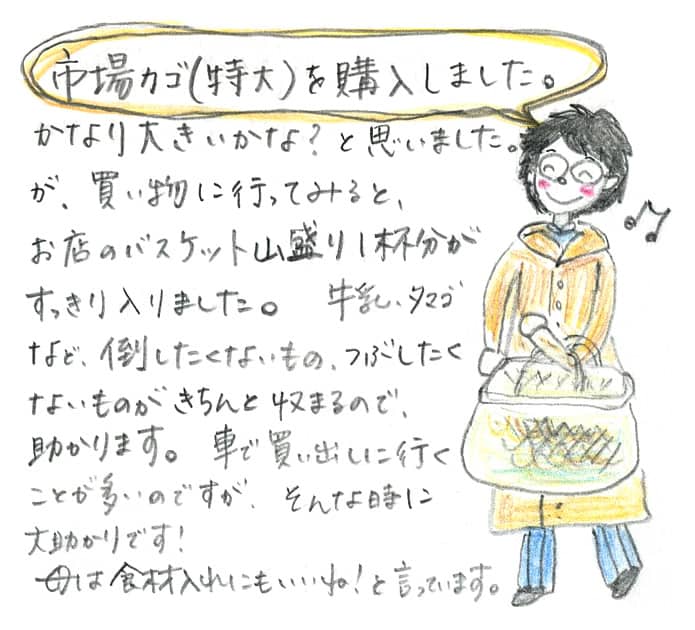 市場カゴ(特大)を購入しました。
かなり大きいかな?と思いました。
が、買い物に行ってみると、
お店のバスケット山盛り1杯分が
すっきり入りました。 牛乳、タマゴ
など、倒したくないもの、つぶしたく
ないものがきちんと収まるので、
助かります。 車で買い出しに行く
ことが多いのですが、そんな時に
大助かりです!
母は食材入れにもいいね!と言っています。